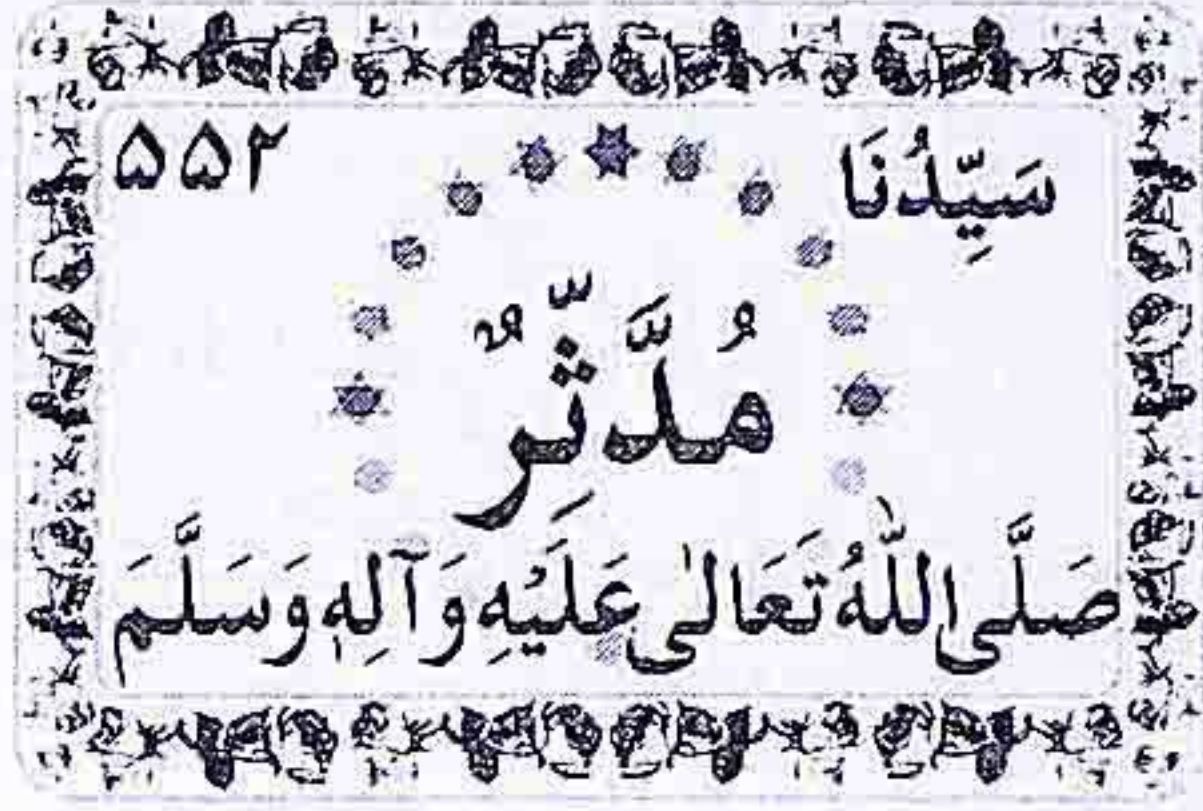 سَيِّدُنَا ۵۵۲
مُدَّثِّرٌ
صَلَّى اللّٰهُ تَعَالٰى عَلَيْهِ وَآلِهٖ وَسَلَّمَ